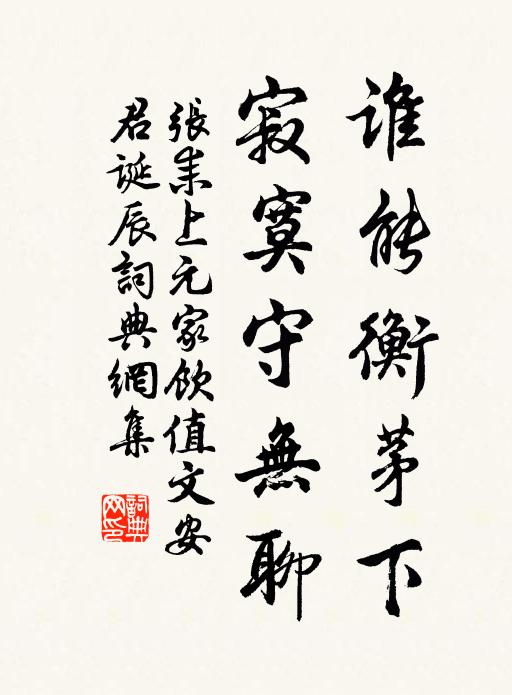 誰能衡茅下
寂寞守無聊
張耒上元家飲值文安
君誕辰詞典網集
詞典
网印